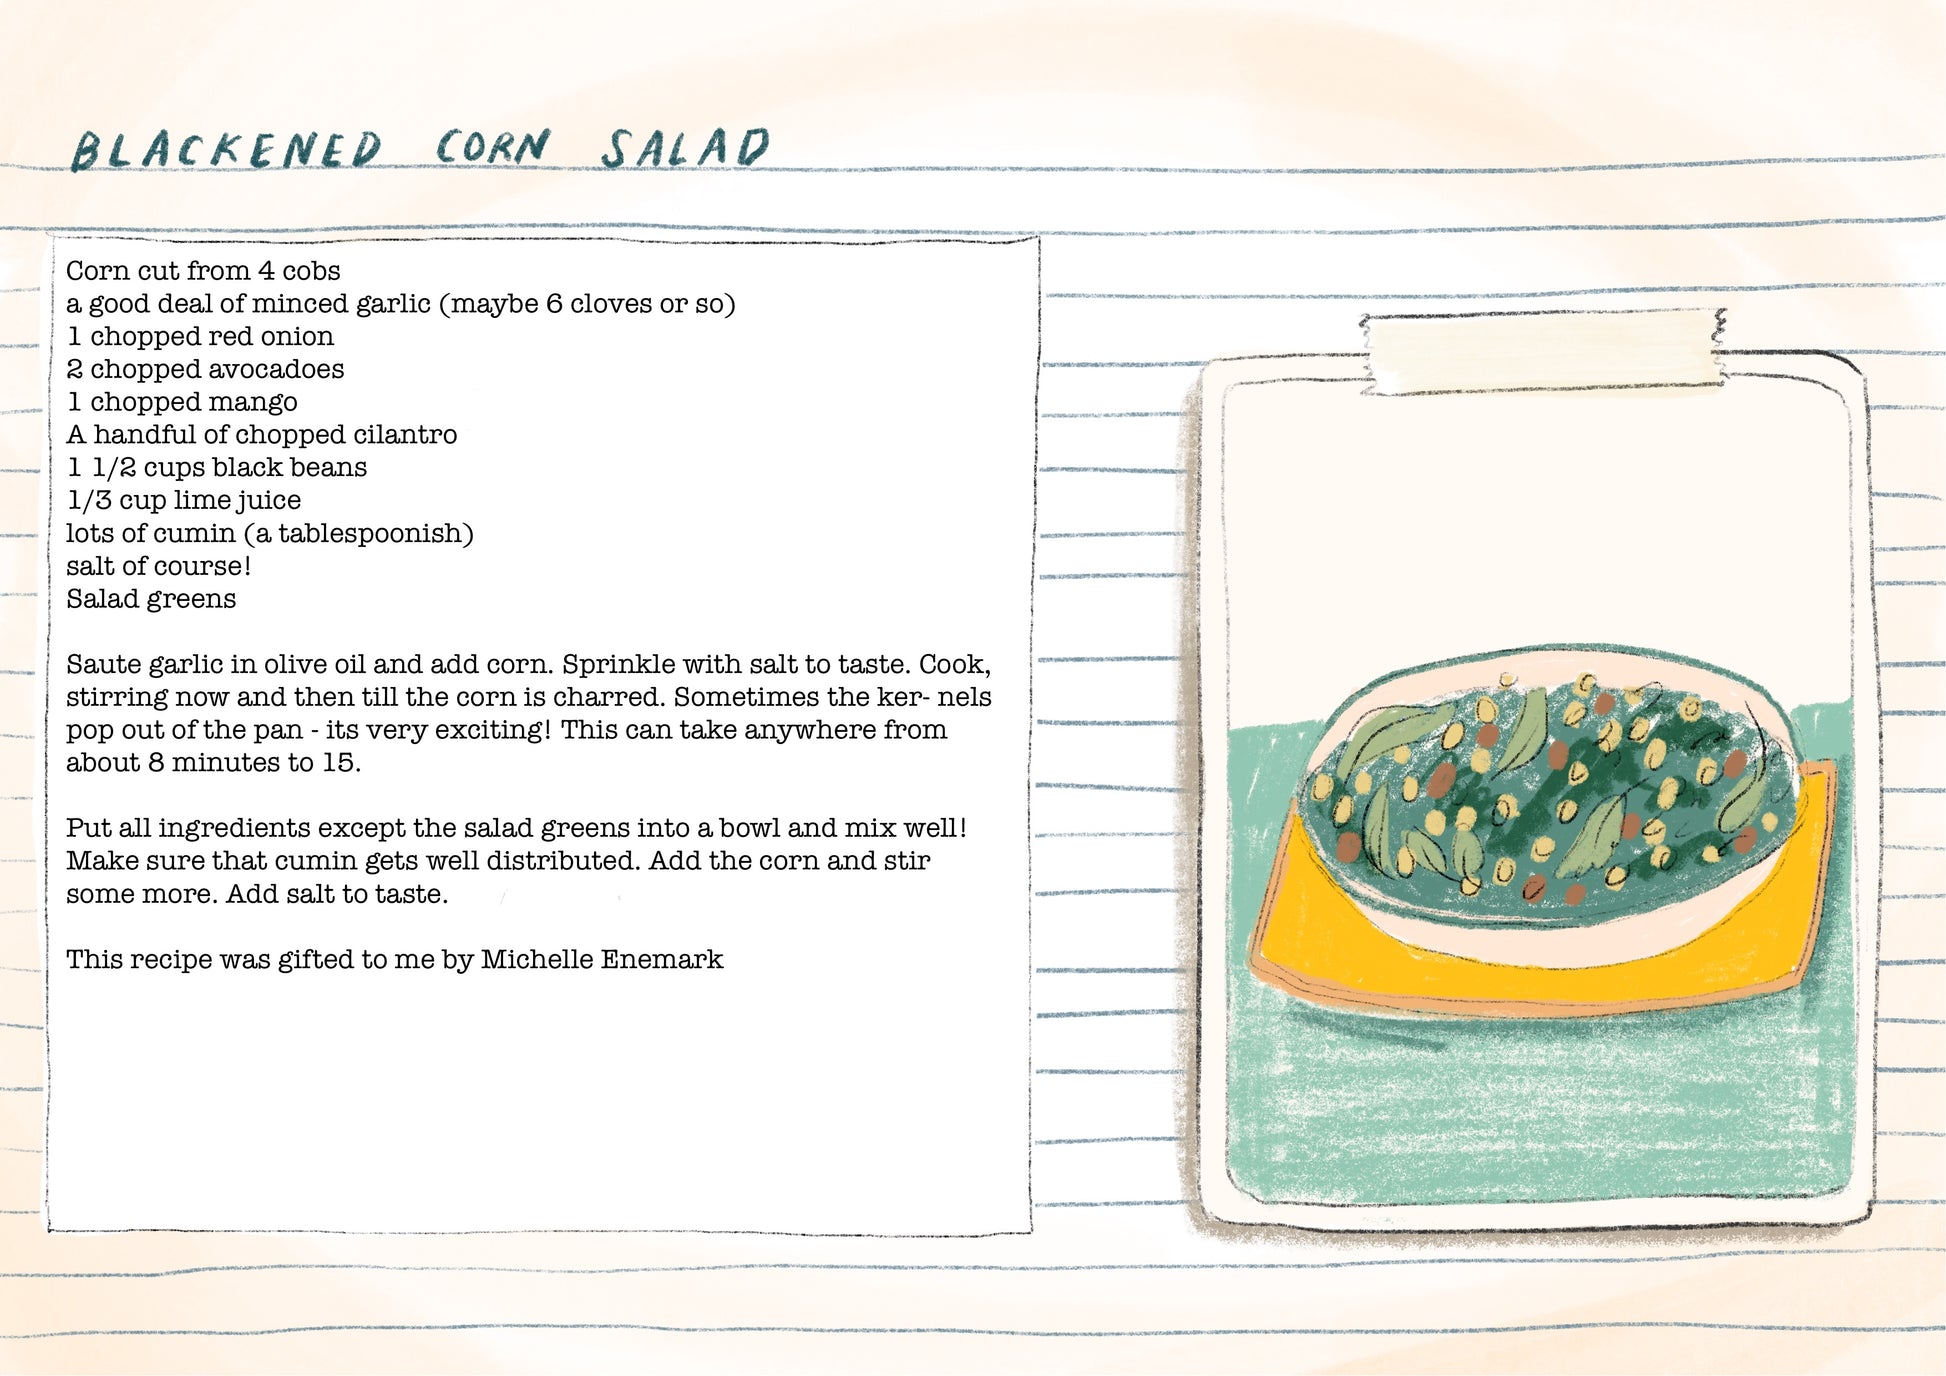 BLACKENED CORN SALAD
Corn cut from 4 cobs
a good deal of minced garlic (maybe 6 cloves or so)
1 chopped red onion
2 chopped avocadoes
1 chopped mango
A handful of chopped cilantro
1 1/2 cups black beans
1/3 cup lime juice
lots of cumin (a tablespoonish)
salt of course!
Salad greens
Saute garlic in olive oil and add corn. Sprinkle with salt to taste. Cook,
stirring now and then till the corn is charred. Sometimes the ker- nels
pop out of the pan - its very exciting! This can take anywhere from
about 8 minutes to 15.
Put all ingredients except the salad greens into a bowl and mix well!
Make sure that cumin gets well distributed. Add the corn and stir
some more. Add salt to taste.
This recipe was gifted to me by Michelle Enemark